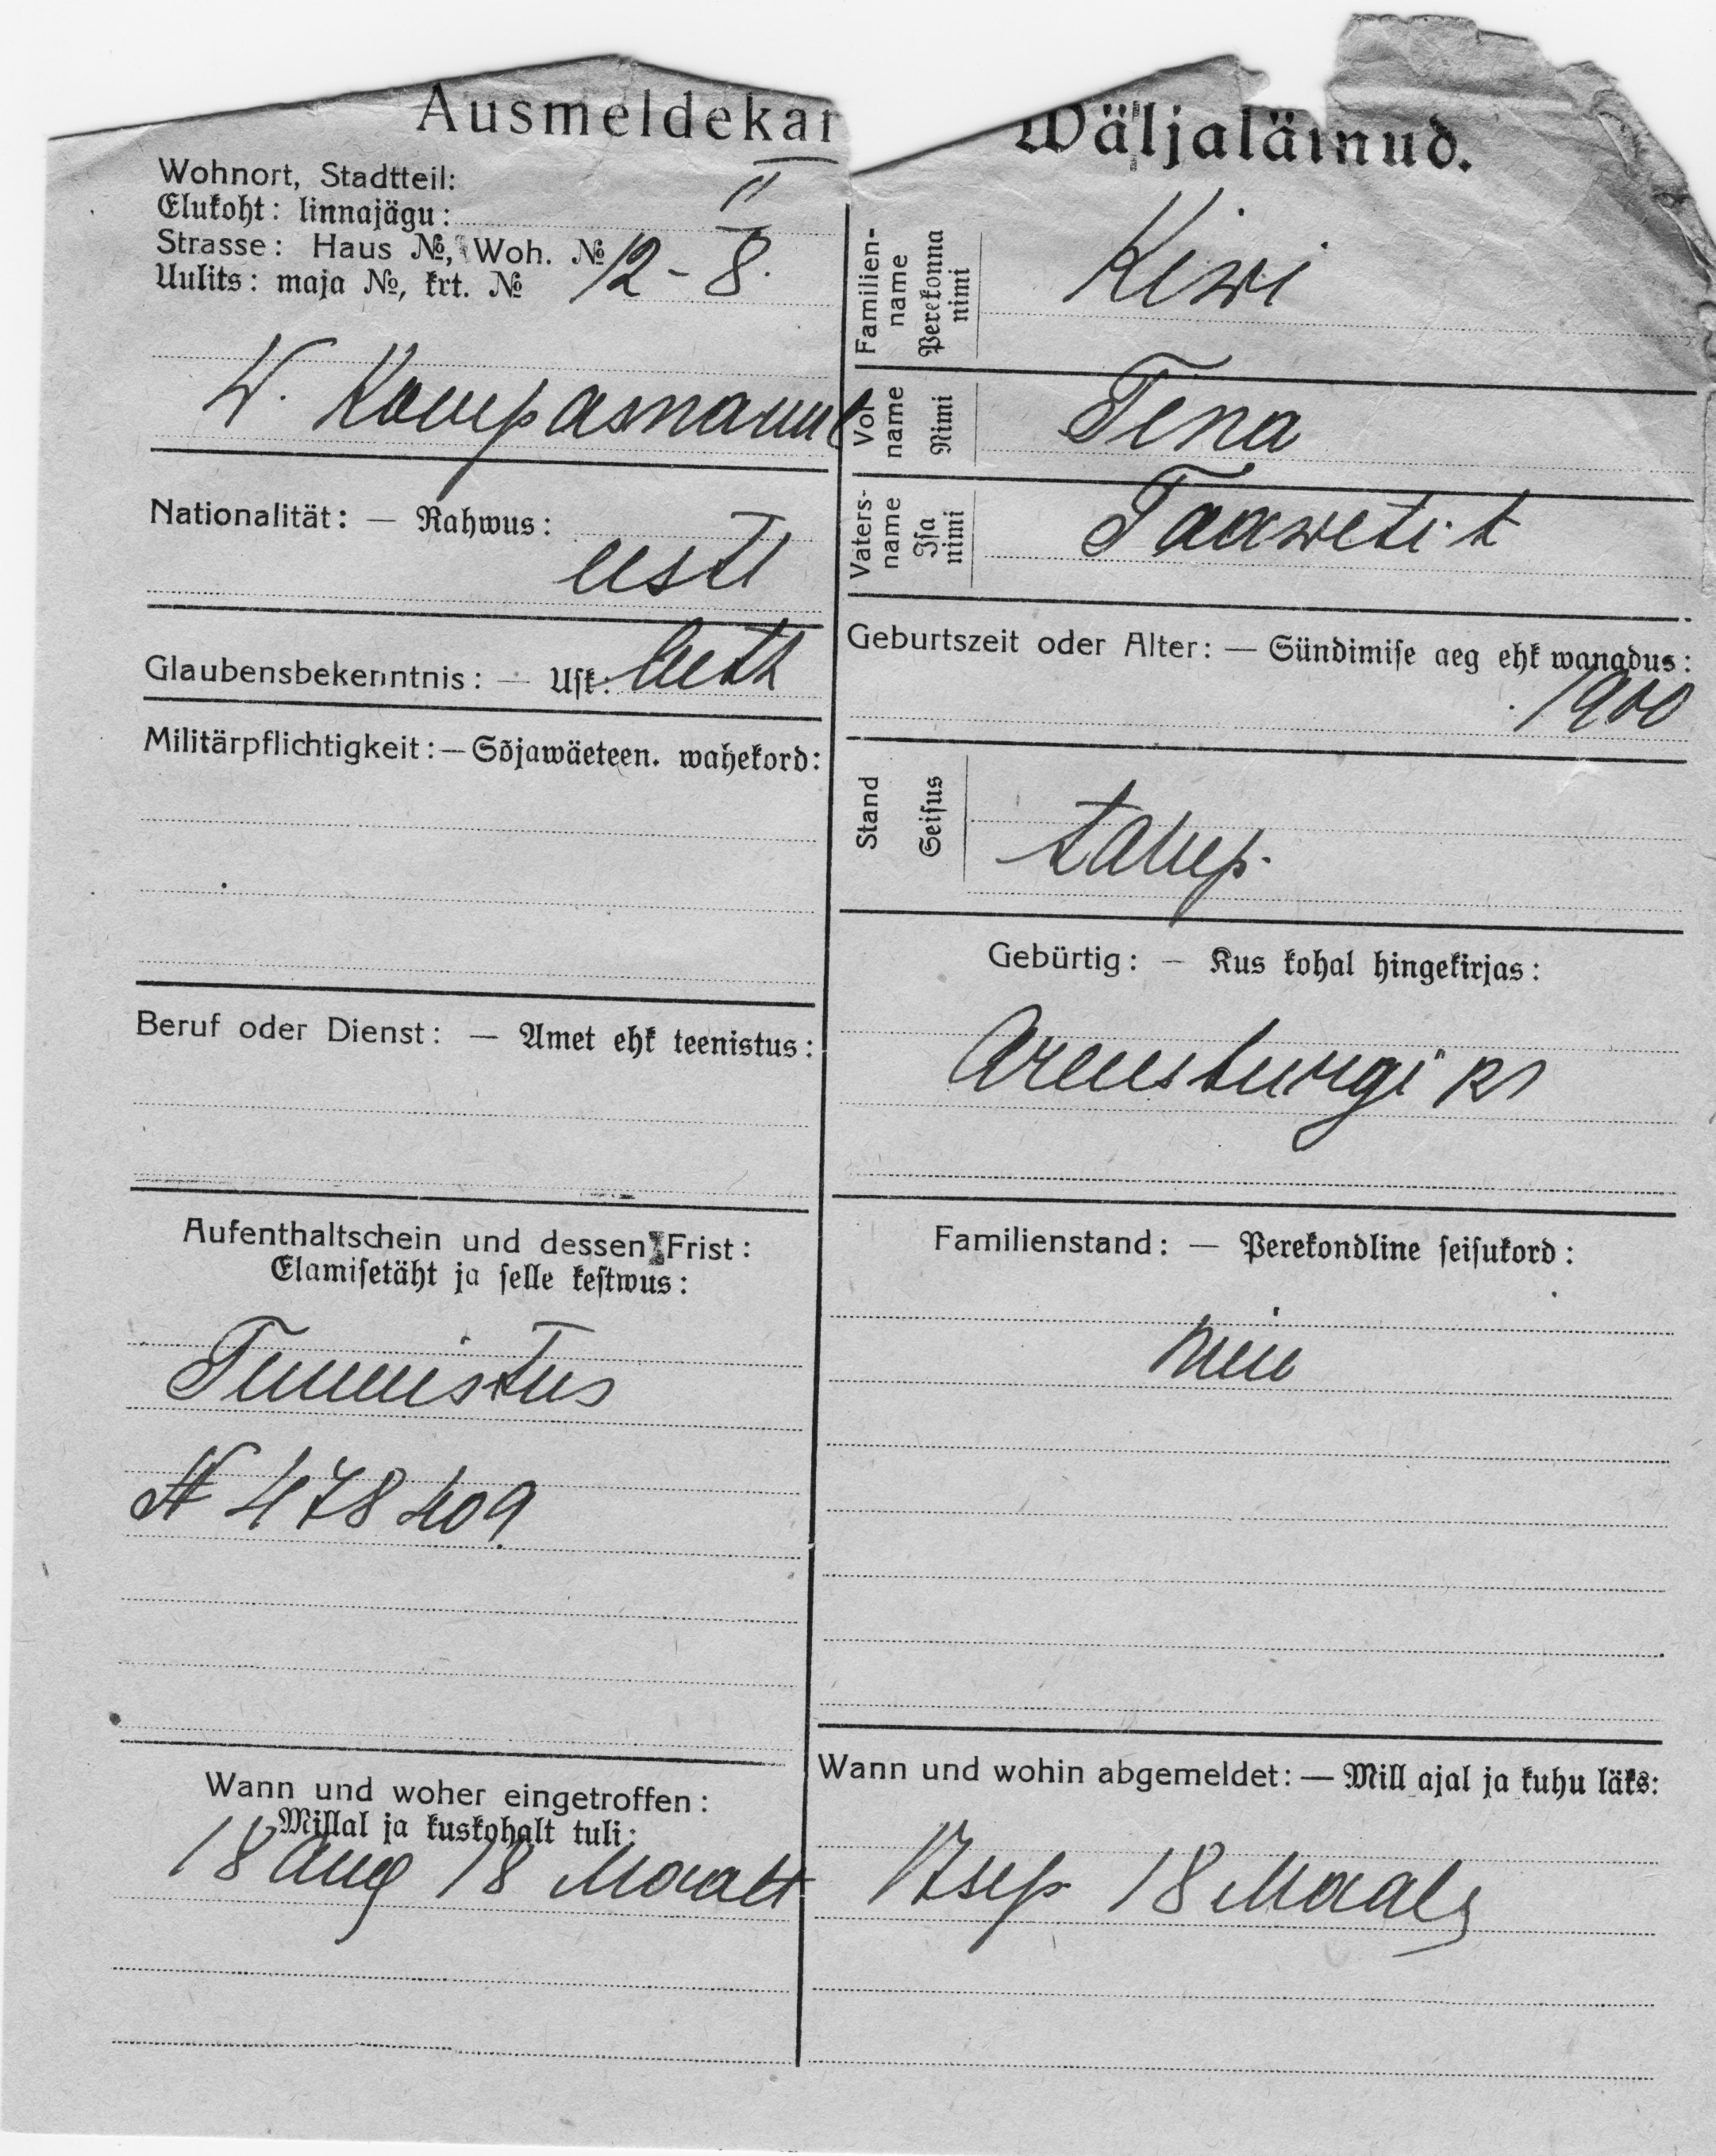 Ausmeldekar
Wohnort, Stadtteil:
Elukoht: linnajägu: II
Strasse: Haus №, Woh. №
Uulits: maja №, krt. № 12 - 8.
W. Kompasnaund
Nationalität: — Rahwus:
eesti
Glaubensbekenntnis: — Usk: luth
Militärpflichtigkeit: — Sõjawäeteen. wahekord:
Beruf oder Dienst: — Amet ehk teenistus:
Aufenthaltschein und dessen Frist:
Elamisetäht ja selle kestwus:
Tunnistus
№ 478409
Wann und woher eingetroffen:
Millal ja kuskohalt tuli:
18 aug 18 Maalt
Wäljaläinud.
Familien-
name
Perekonna
nimi
Kiwi
Vor
name
Nimi
Tina
Vaters-
name
Isa
nimi
Taaweti t
Geburtszeit oder Alter: — Sündimise aeg ehk wanadus:
1900
Stand
Seisus
talup.
Gebürtig: — Kus kohal hingekirjas:
Arensburgi kr
Familienstand: — Perekondline seisukord:
neiu
Wann und wohin abgemeldet: — Mill ajal ja kuhu läks:
17 sep 18 Maale